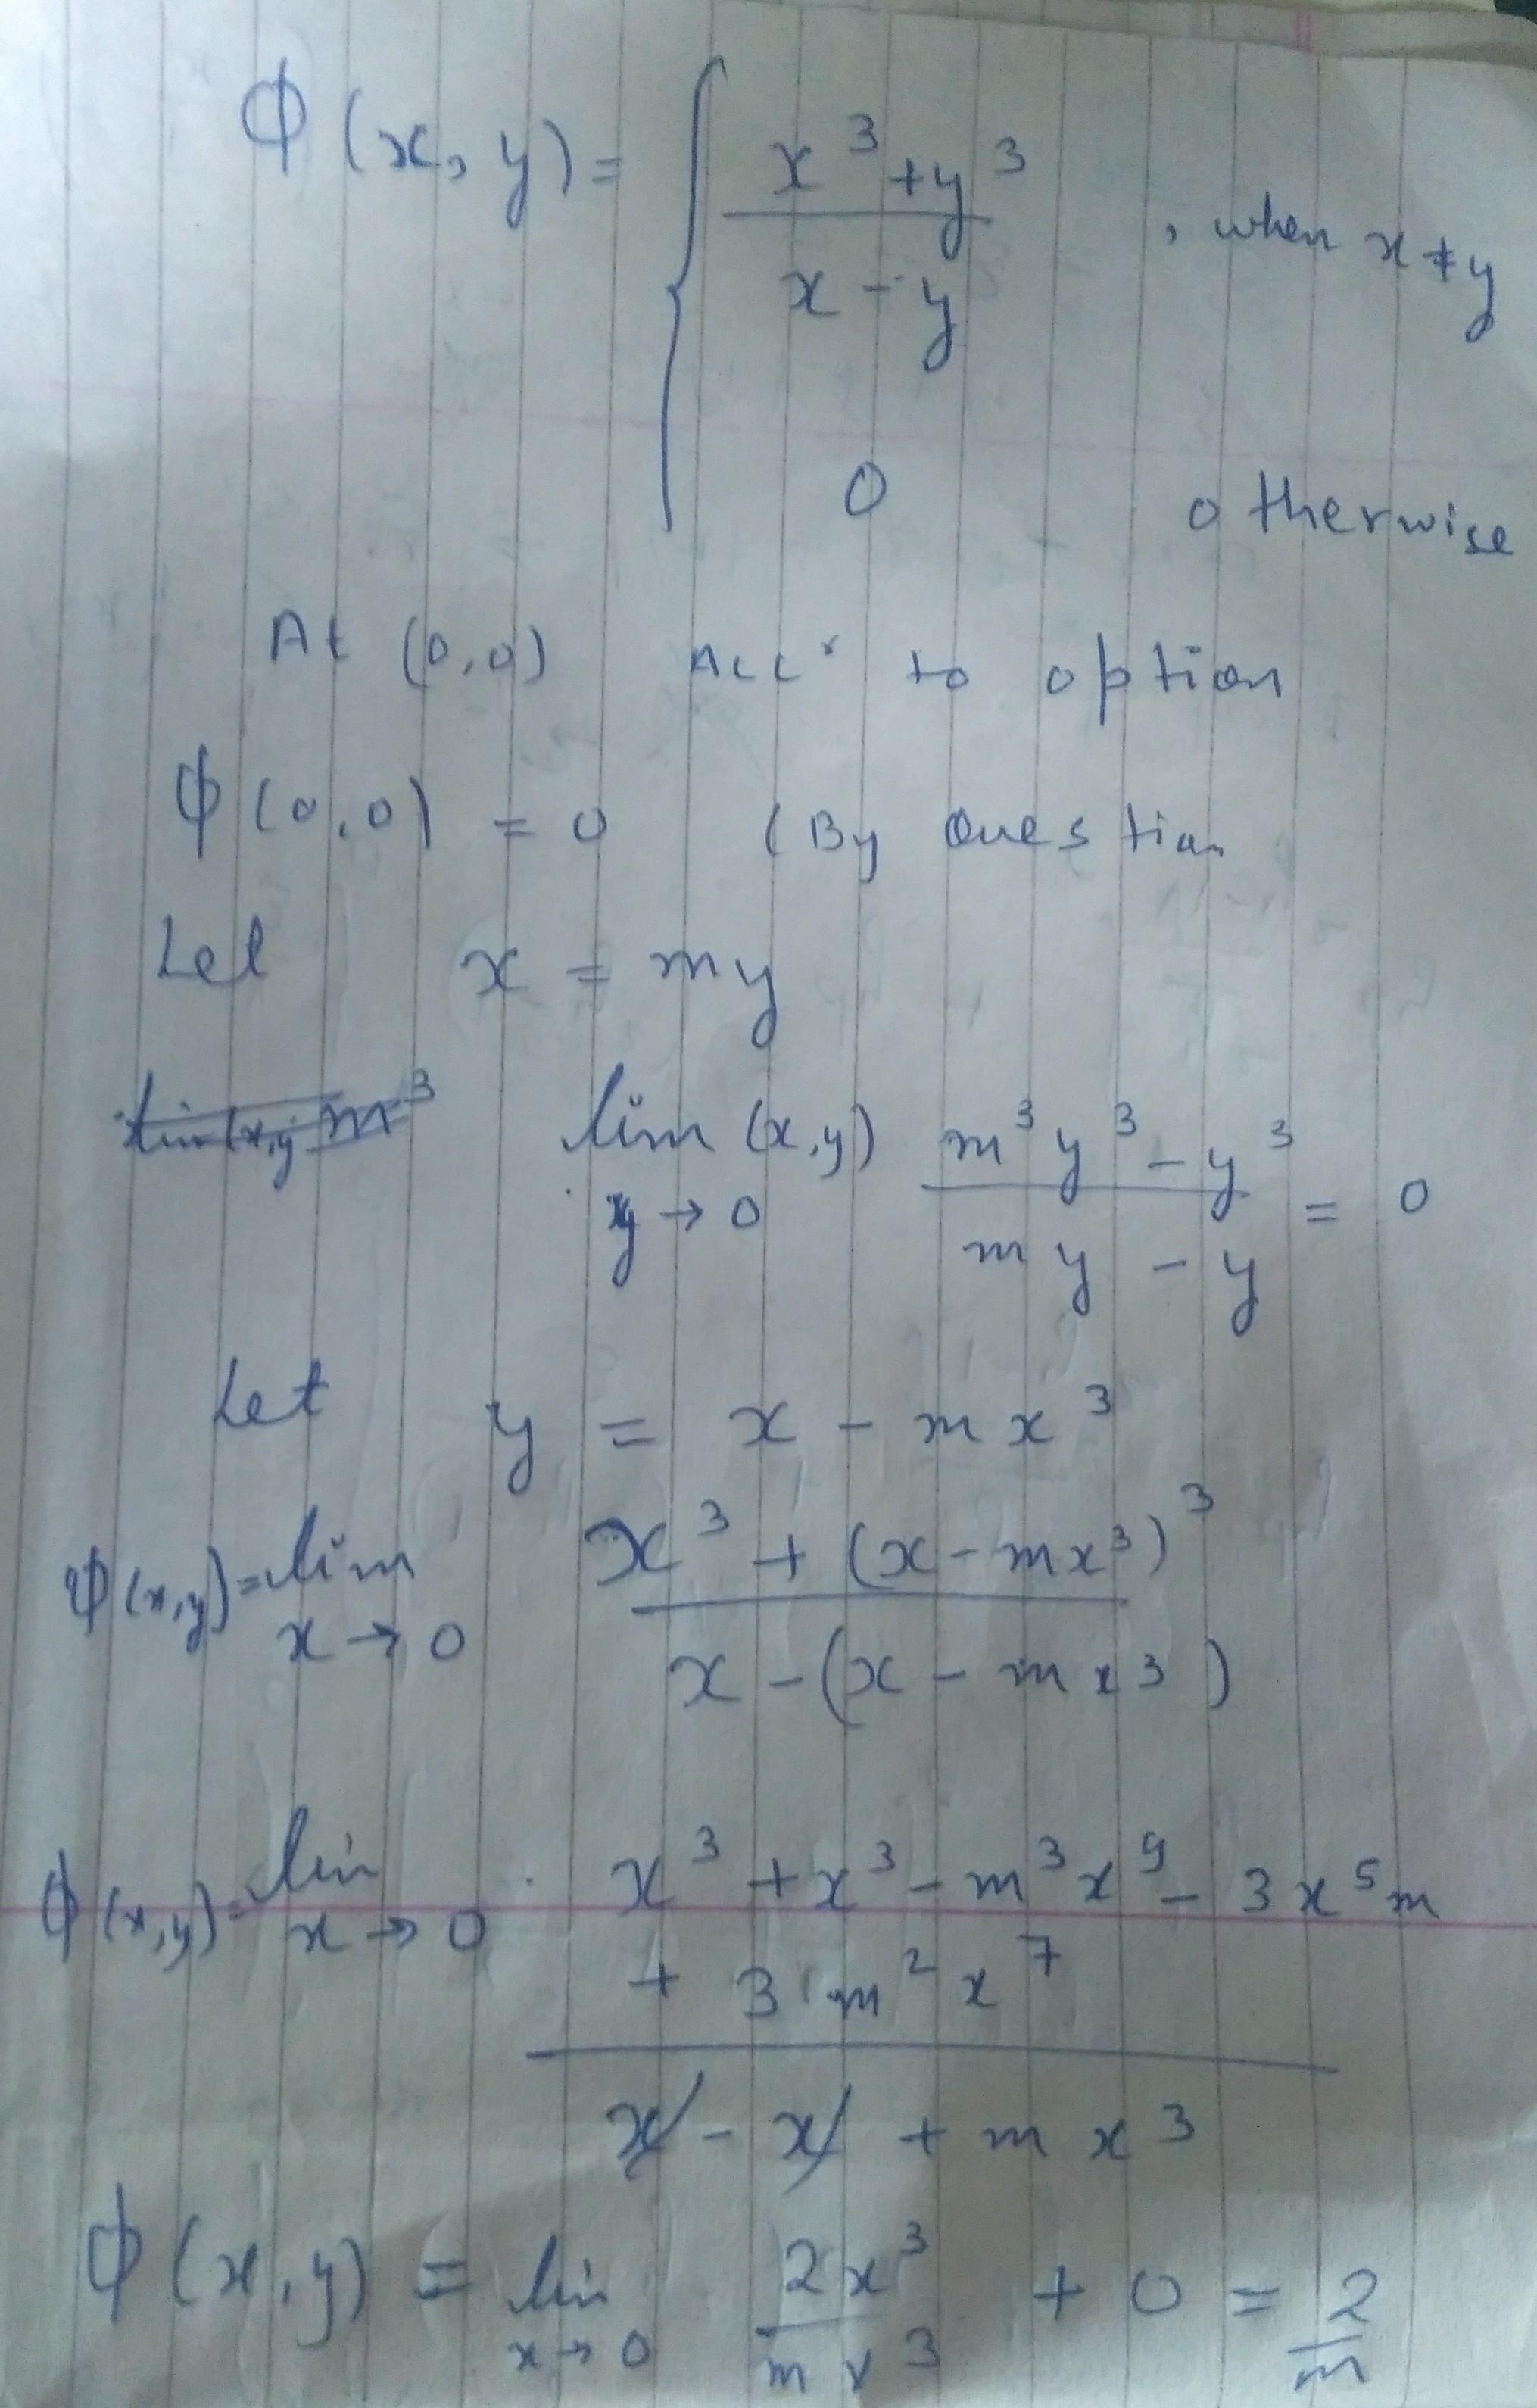 ϕ(x, y) = { x³+y³ / x - y , when x ≠ y
0 otherwise
At (0,0) Accʳ to option
ϕ(0,0) = 0 (By Question
Let x = my
lim(x,y m³ lim (x,y) y→0 m³y³ - y³ / my - y = 0
Let y = x - mx³
ϕ(x,y) = lim x→0 x³ + (x - mx³)³ / x - (x - mx³)
ϕ(x,y) = lim x→0 x³ + x³ - m³x⁹ - 3x⁵m
+ 3m²x⁷
/ x - x + mx³
ϕ(x,y) = lim x→0 2x³ / mx³ + 0 = 2/m